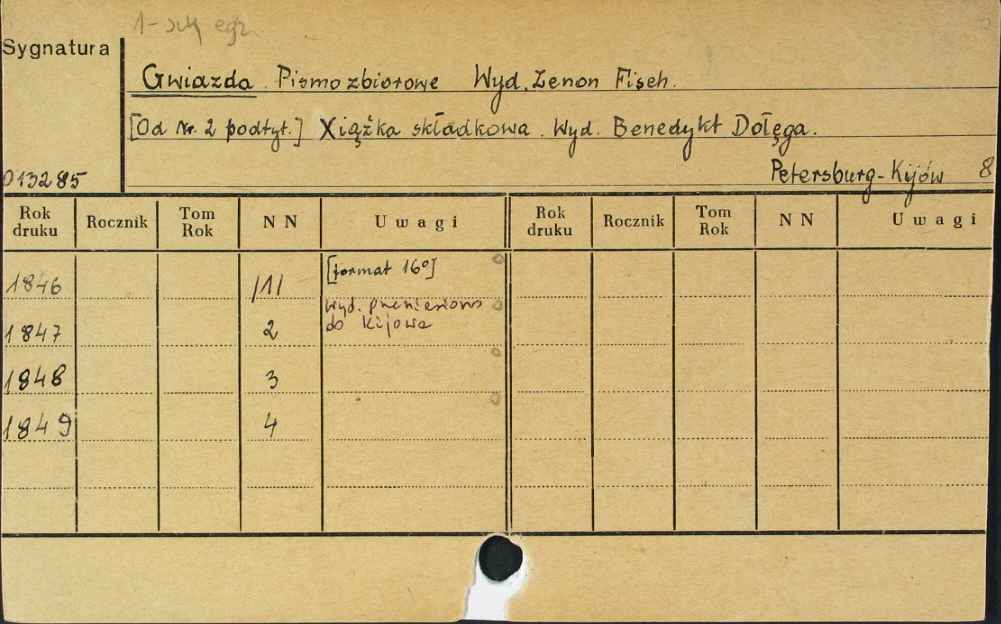 1-szy egz.
Sygnatura
Gwiazda. Pismo zbiorowe Wyd. Zenon Fisch.
[Od Nr. 2 podtyt.] Xiążka składkowa. Wyd. Benedykt Dołęga.
013285
Petersburg-Kijów 8
Rok druku Rocznik Tom Rok NN Uwagi Rok druku Rocznik Tom Rok NN Uwagi
1846 /1/ [format 16°]
wyd. przeniesiono
1847 2 do Kijowa
1848 3
1849 4